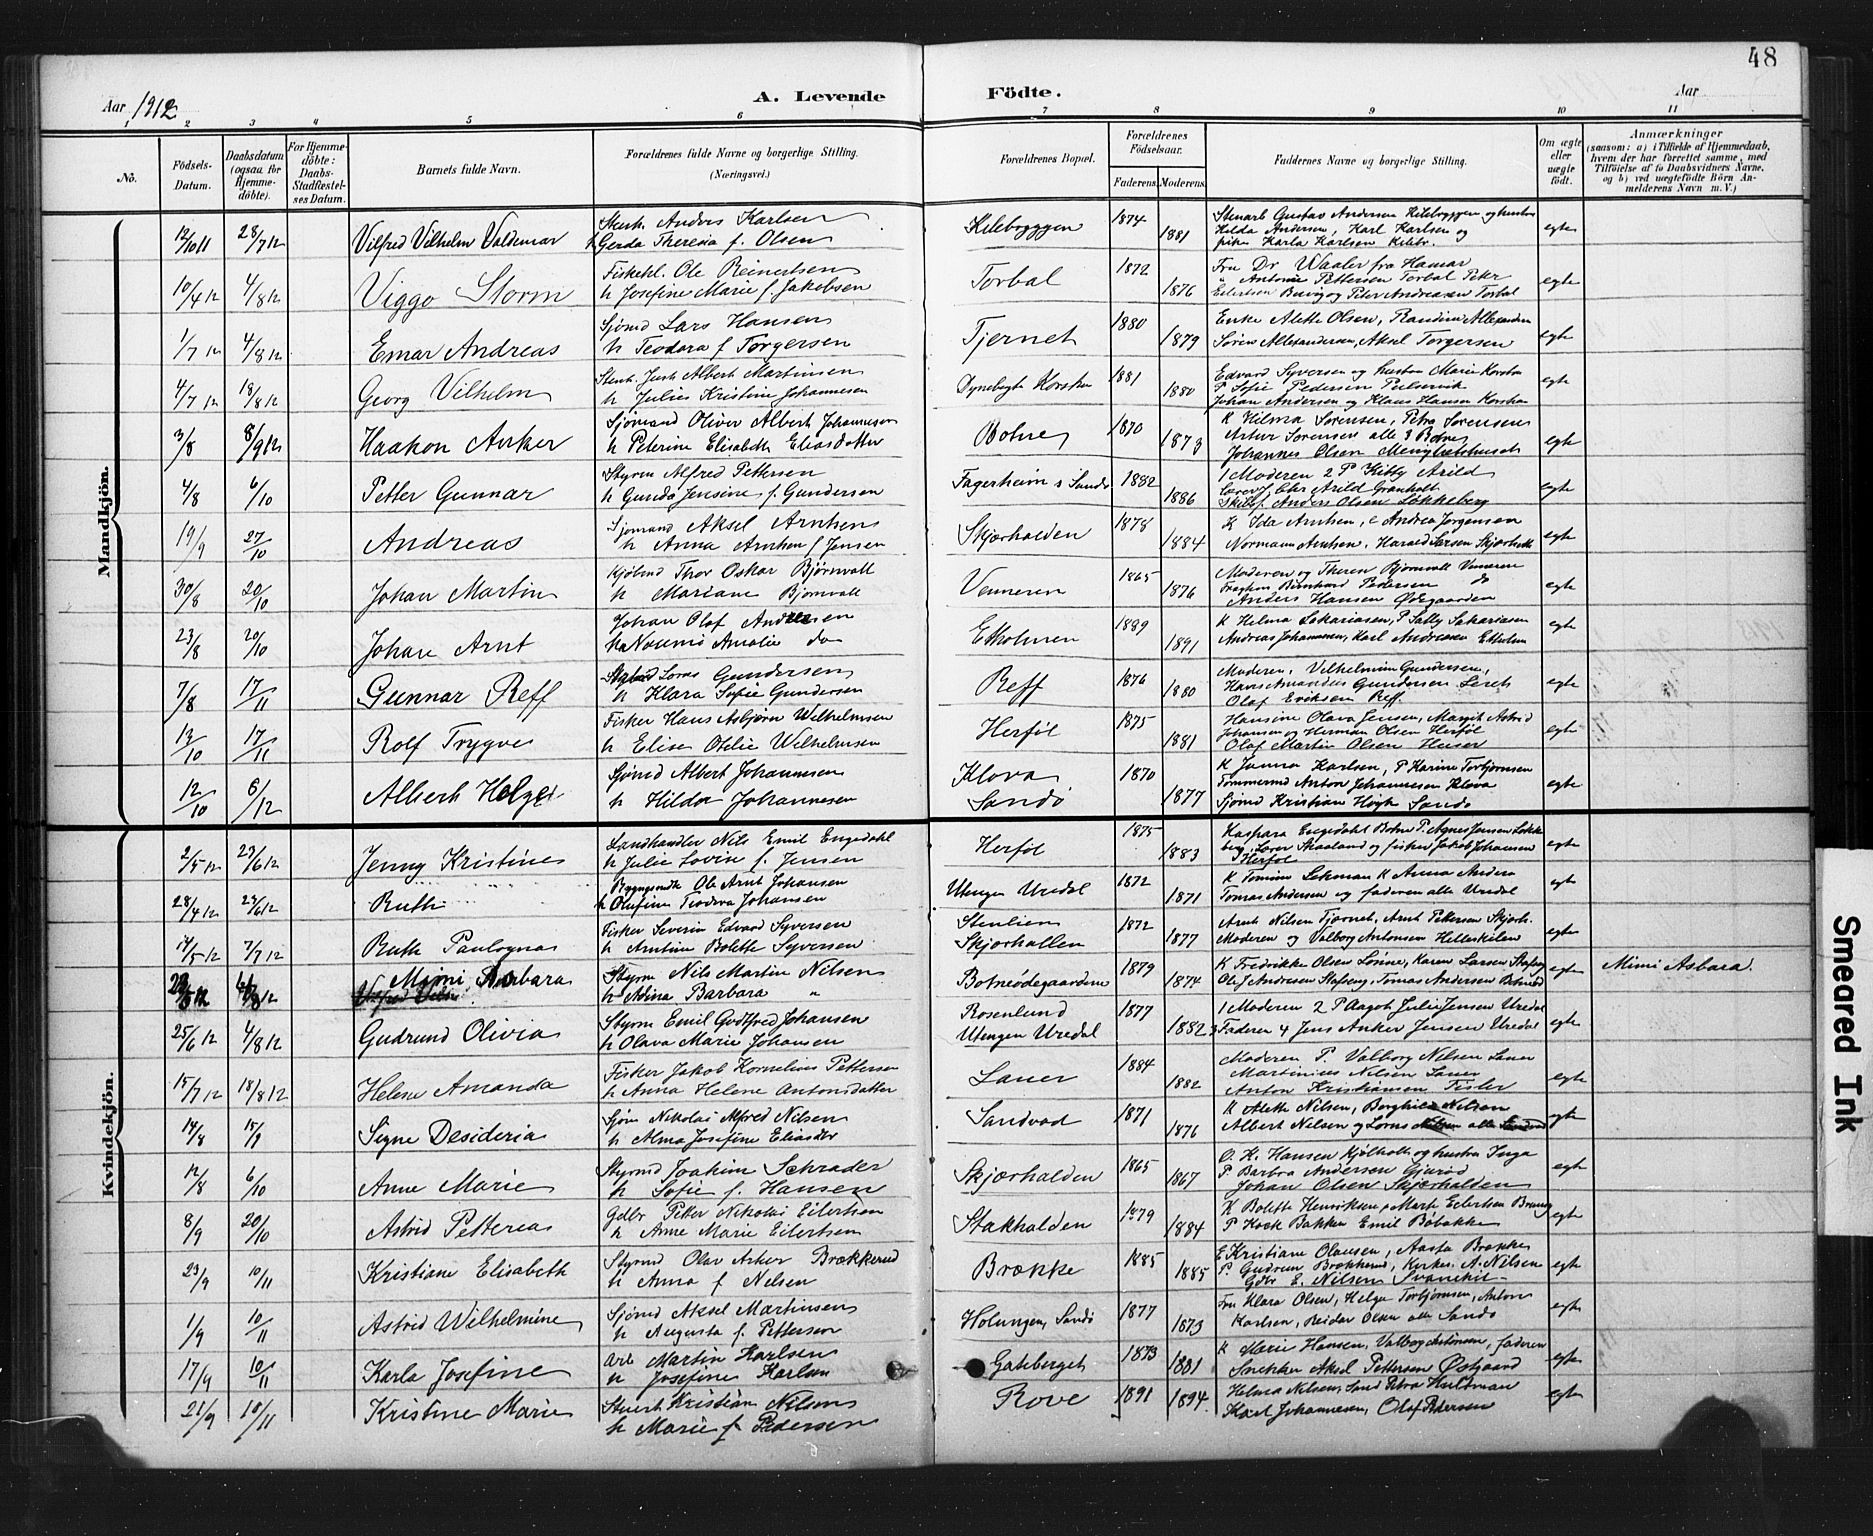 48
Aar 1912
A. Levende Födte.
Aar
1 2 3 4 5 6 7 8 9 10 11
No.
Födsels-Datum.
Daabsdatum (ogsaa for Hjemme-döbte).
For Hjemme-döbte: Daabs-Stadfæstel-ses Datum.
Barnets fulde Navn.
Forældrenes fulde Navne og borgerlige Stilling.
(Næringsvei.)
Forældrenes Bopæl.
Forældrenes Födselsaar.
Faderens. Moderens.
Faddernes Navne og borgerlige Stilling.
Om ægte eller uægte födt.
Anmærkninger
(saasom: a) i Tilfælde af Hjemmedaab, hvem der har forrettet samme, med Tilföielse af to Daabsvidners Navne, og b) ved uægtefödte Börn An-melderens Navn m. V.)
Mandkjön.
12/10 11 28/7 12 Vilfred Vilhelm Valdemar Stenh. Anders Karlsen Gerda Theresia f. Olsen Kilebryggen 1874 1881 Stenarb Gustav Andersen Kilebryggen og hustru Hilda Andersen, Karl Karlsen og pike Karla Karlsen Kilebr. egte
10/4 12 4/8 12 Viggo Storm Fiskehl. Ole Reinertsen h Josefine Marie f. Jakobsen Torbal 1872 1876 Fru Dr Waaler fra Hamar Antonie Pettersen Torbal Peter Eilertsen Buvig og Peter Andreasen Torbal egte
1/7 12 4/8 12 Emar Andreas Sjömd Lars Hansen h Teodora f Torgersen Tjernet 1880 1879 Enke Alette Olsen, Randine Allexandersen Sören Allexandersen, Aksel Torgersen egte
4/7 12 18/8 12 Georg Vilhelm Stenh Just Albert Martinsen h Julie Kristine Johannesen Dynebugt Korshavn 1881 1880 Edvard Syversen og hustru Marie Korshavn P. Sofie Pedersen Pulservik Johan Andersen og Klaus Hansen Korshavn
3/8 8/9 12 Haakon Anker Sjömand Oliver Albert Johannesen h Peterine Elisabeth Eliasdatter Botne 1870 1873 K Hilma Sörensen, Petra Sörensen Artur Sörensen alle 3 Botne Johannes Olsen Menighetshuset egte
4/8 6/10 Petter Gunnar Styrm Alfred Pettersen h Gunda Jensine f. Gundersen Fagerheim s Sandö 1882 1886 1 Moderen 2 P Kitty Arild Lærer J. Chr Arild Granholt Skibsf. Anders Olsen Løkkeberg egte
19/9 27/10 Andreas Sjömand Aksel Arntsen h Anna Arntsen f Jensen Skjærhalden 1878 1884 K Ida Arntsen, e Andrea Jörgensen Normann Arntsen. Harald Larsen Skjærh. egte
30/8 20/10 Johan Martin Kjöbmd Thor Oskar Björnvall h Mariane Björnvall Venneren 1865 1876 Moderen og Therese Björnvall Venneren Bernhard Pedersen do Anders Hansen Ødegaarden egte
23/8 20/10 Johan Arnt Johan Olaf Andresen h Noemi Amalie do Ekholmen 1889 1891 K Helma Sakariasen, P Sally Sakariasen Andreas Johannesen, Karl Andreasen Ekholmen egte
7/8 17/11 Gunnar Reff Lorns Gundersen h Klara Sofie Gundersen Reff 1876 1880 Moderen, Vilhelmine Gundersen, Hans Amandus Gundersen Lerets Olaf Eriksen Reff. egte
13/10 17/11 Rolf Trygve Fisker Hans Asbjörn Wilhelmsen h Elise Otilie Wilhelmsen Herföl 1875 1881 Hansine Olava Jensen, Margit Astrid Johansen og Herman Olsen Herföl Olaf Martin Olsen Heiser egte
12/10 6/12 Albert Helge Sjömd Albert Johannesen h Hilda Johannesen Klova Sandö 1870 1877 K Janna Karlsen, P Karine Torbjörnsen Tömmermd Anton Johannesen Klova Sjömd Kristian Høgh Sandö egte
Kvindekjön.
2/5 12 23/6 12 Jenny Kristine Landhandler Nils Emil Engedahl h Julie Lovise f. Jensen Herföl 1875 1883 Kaspara Engedahl Botne P. Agnes Jensen Løkkeberg, Lærer Skaaland og fisker Jakob Johansen Herföl egte
28/4 12 23/6 12 Ruth Ole Arnt Johansen h Olufine Teodora Johansen Utengen Uredal 1872 1871 K Tomine Lekman K Anna Andersen Tomas Andersen og faderen alle Uredal egt
14/5 12 7/7 12 Ruth Paulogna Fisker Severin Edvard Syversen h Arntine Bolette Syversen Stenlien Skjærhallen 1872 1877 Arnt Nilsen Tjernet, Arnt Pettersen Skjærh. Moderen og Valborg Antonsen Hellekilen egte
22/5 12 4/8 12 Mimi Asbara Styrm Nils Martin Nilsen h Adina Barbara Botneødegaardene 1879 1874 K Fredrikke Olsen Lönne, Karen Larsen Stafseng Olaf Andresen Stafseng, Tomas Andersen Botneød egte Mimi Asbara.
25/6 12 4/8 12 Gudrund Olivia Styrm Emil Godtfred Johansen h Olava Marie Johansen Rosenlund Utengen Uredal 1877 1882 1 Moderen 2 P Aagot Julie Jensen Uredal 3 Faderen 4 Jens Anker Jensen Uredal egte
15/7 12 18/8 12 Helene Amanda Fisker Jakob Kornelius Pettersen h Anna Helene Antonsdatter Lauer 1884 1882 Moderen P. Valborg Nilsen Lauer Martinius Nilsen Lauer Anton Kristiansen Fisler egte
14/8 15/9 Signe Desideria Sjöm Nikolai Alfred Nilsen h Alma Josefine Eliasdtr Sandvad 1871 1876 K Alette Nilsen, Borghild Nilsen Albert Nilsen og Lorns Nilsen alle Sandvad egte
12/8 6/10 Anne Marie Styrmd Joakim Schrader h Sofie f. Hansen Skjærhalden 1865 1867 O. H. Hansen Kjölholt og hustru Inga P. Barbra Andersen Gjuröd Johan Olsen Skjærhalden egte
8/9 20/10 Astrid Pettrea Gdbr Petter Nikolai Eilertsen h Anne Marie Eilertsen Stakhalden 1879 1884 K Bolette Henriksen, Marte Eilertsen Brænne P Kock Bakken Emil Böbakke egte
23/9 10/11 Kristiane Elisabeth Styrmd Olav Anker Brækkerud h Anna f Nelsen Brække 1885 1885 E Kristiane Olausen, Aasta Brække P. Gudrun Brækkerud, Kirkes. A. Nilsen Gdbr E. Nilsen Svanekil egte
1/9 10/11 Astrid Wilhelmine Sjömd Aksel Martinsen h Augusta f. Petterson Holungen, Sandö 1877 1873 Fru Klara Olsen, Helga Torbjörnsen, Anton Karlsen, Reidar Olsen alle Sandö egte
17/9 10/11 Karla Josefine Arb Martin Karlsen h Josefine Karlsen Gateberget 1873 1881 K Marie Hansen, Valborg Antonsen, faderen Snekker Aksel Pettersen Østgaard egte
21/9 10/11 Kristine Marie Stuert Kristian Nilsen h Marie f Pedersen Rove 1891 1894 Helma Nilsen, Sand Petra Huldman Karl Johannesen, Olaf Pedersen egte
Smeared Ink